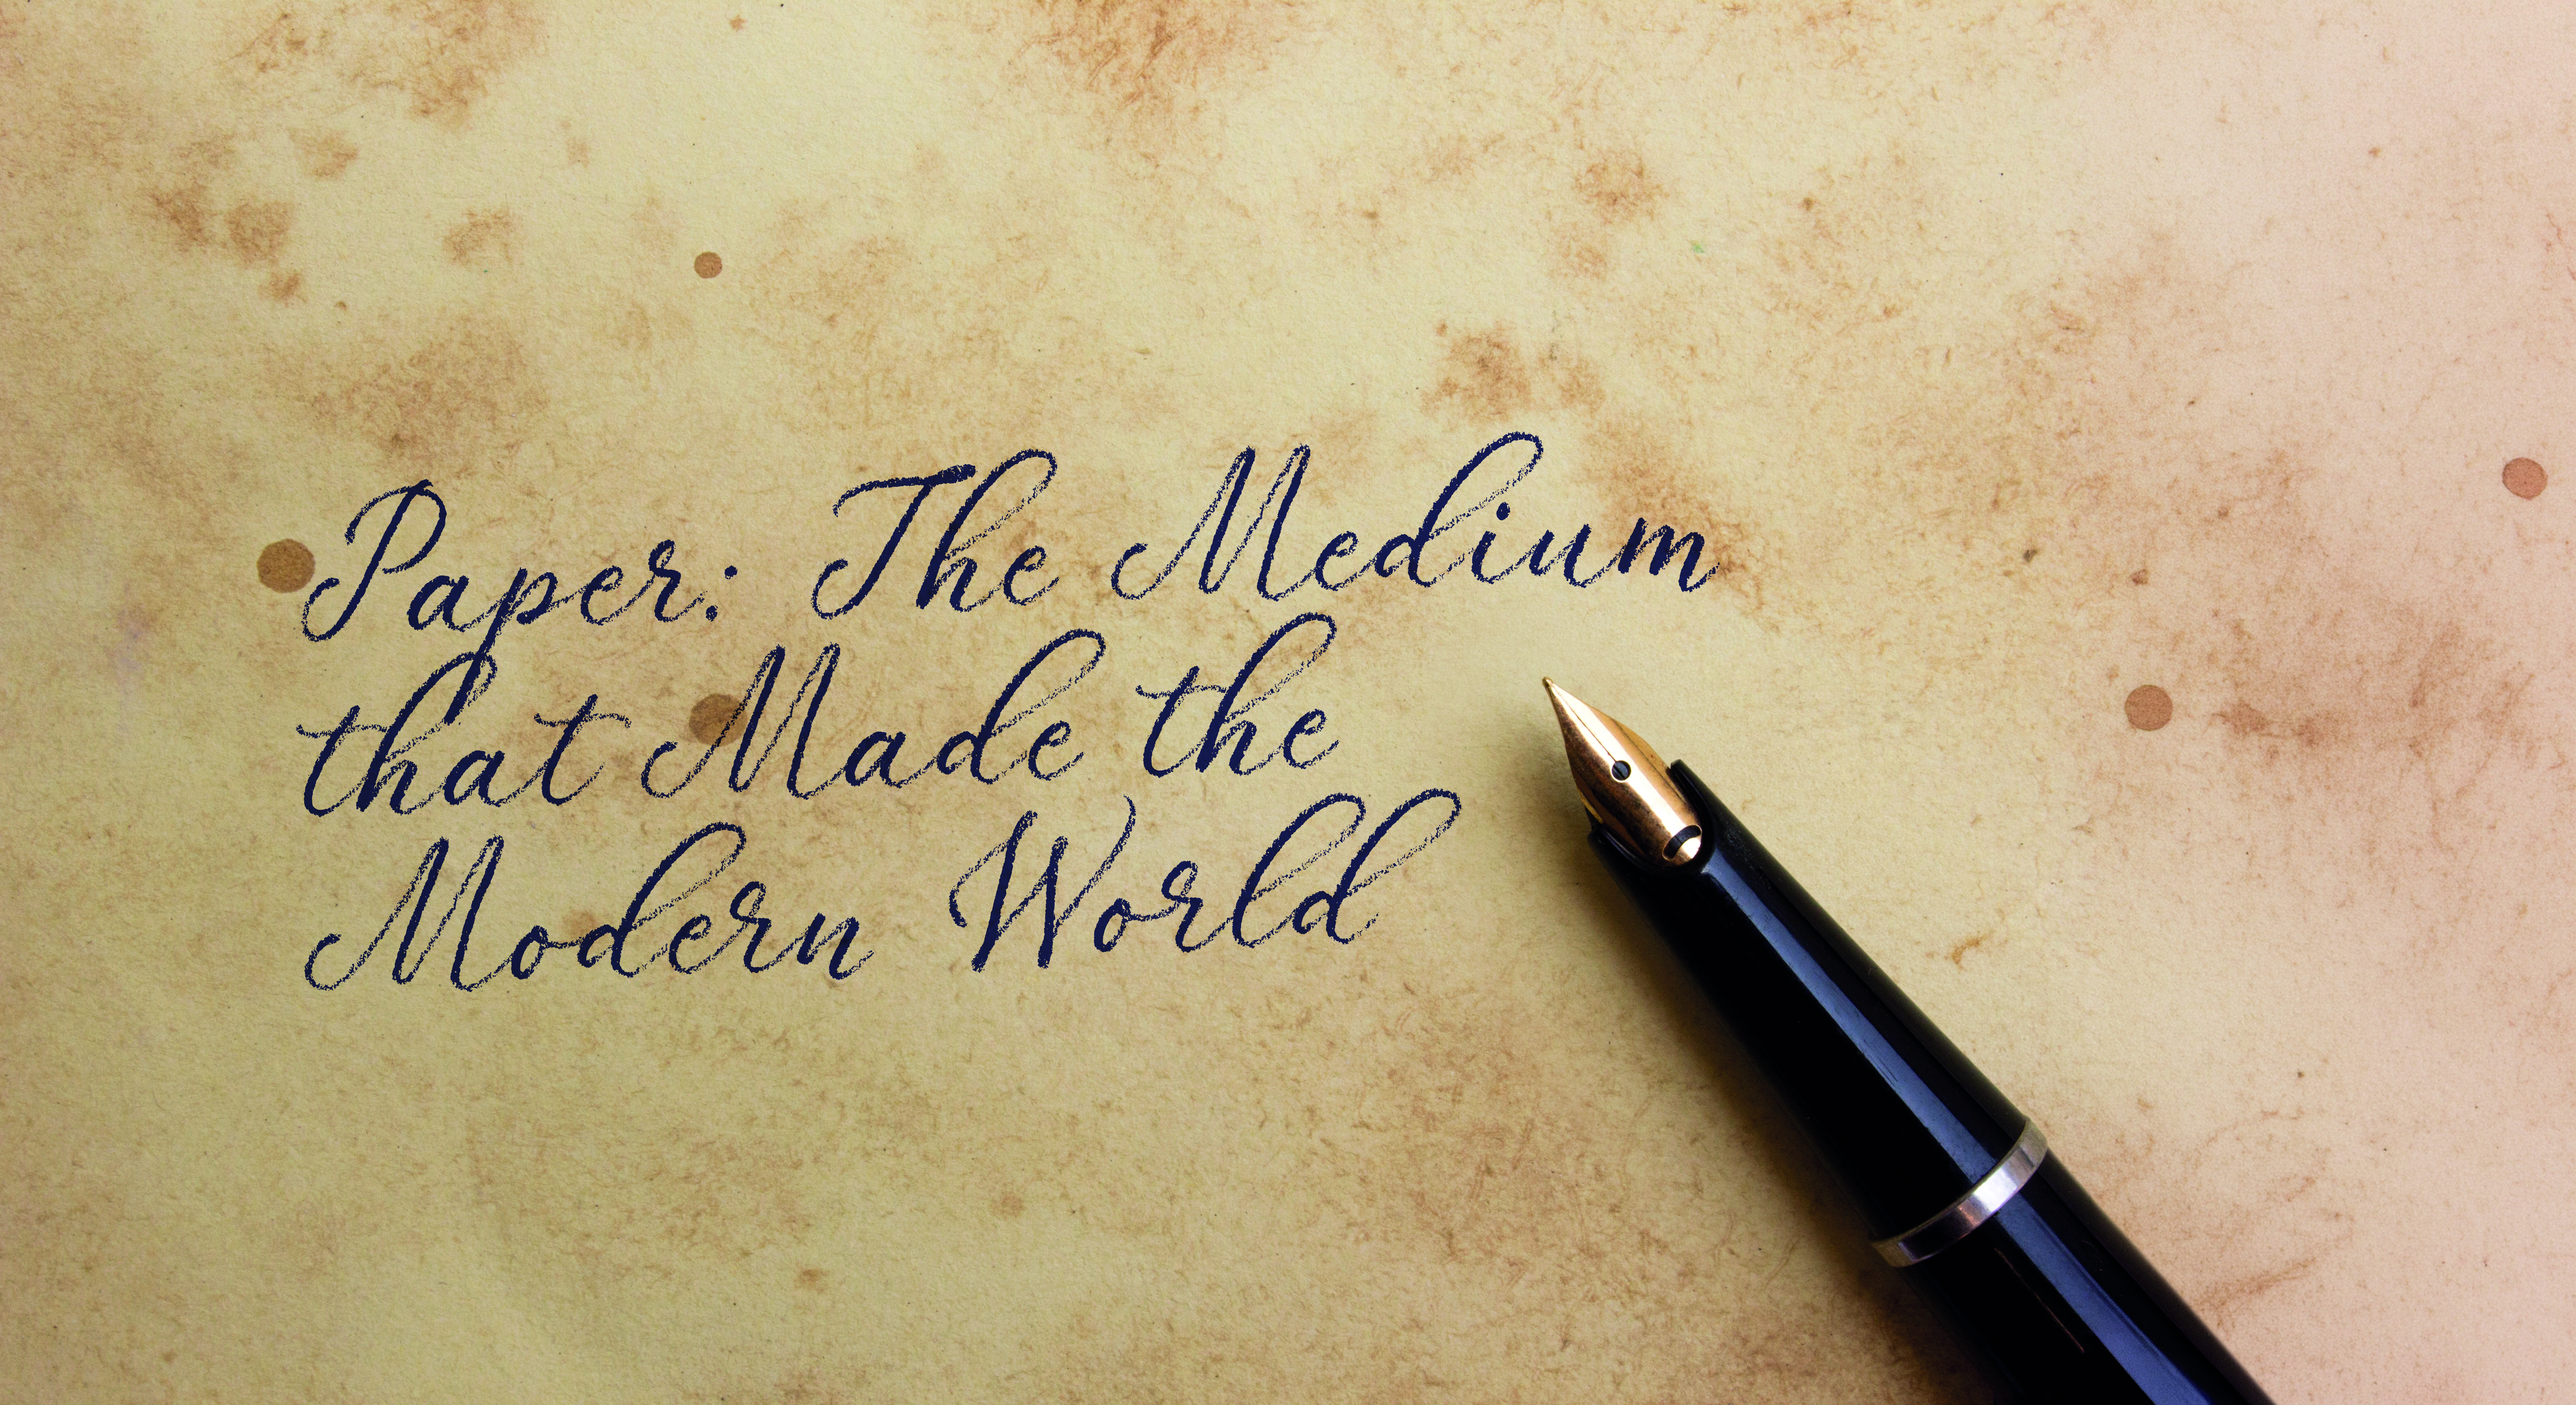 Paper: The Medium
that Made the
Modern World